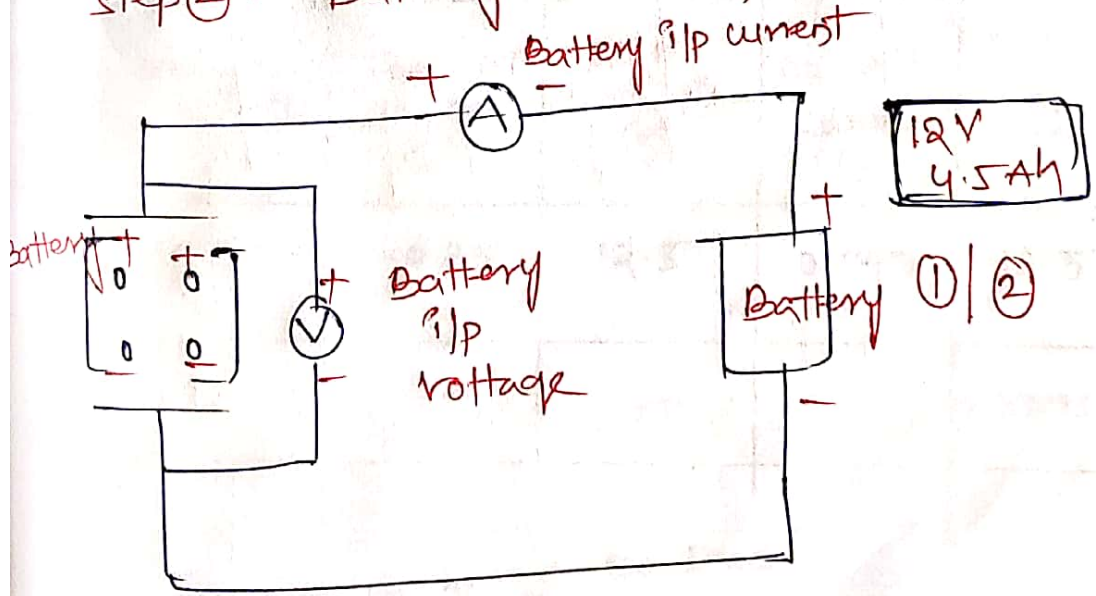 Step ②
Battery i/p current
+ A -
12V
4.5Ah
Battery + +
- -
+ V -
Battery
i/p
vottage
+
Battery ① / ②
-